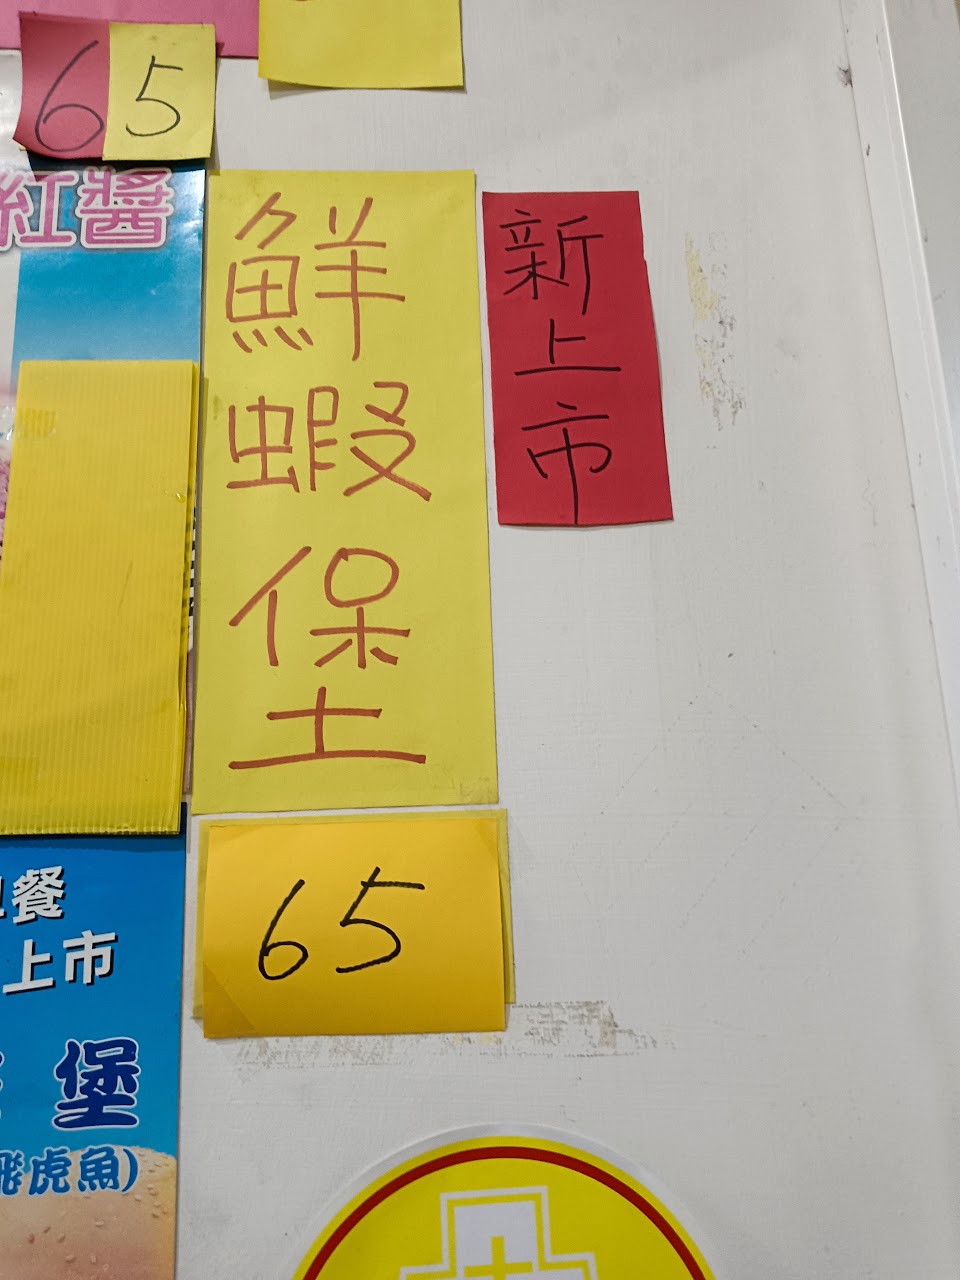 65
紅醬
鮮蝦堡
新上市
65
餐
上市
堡
飛虎魚)